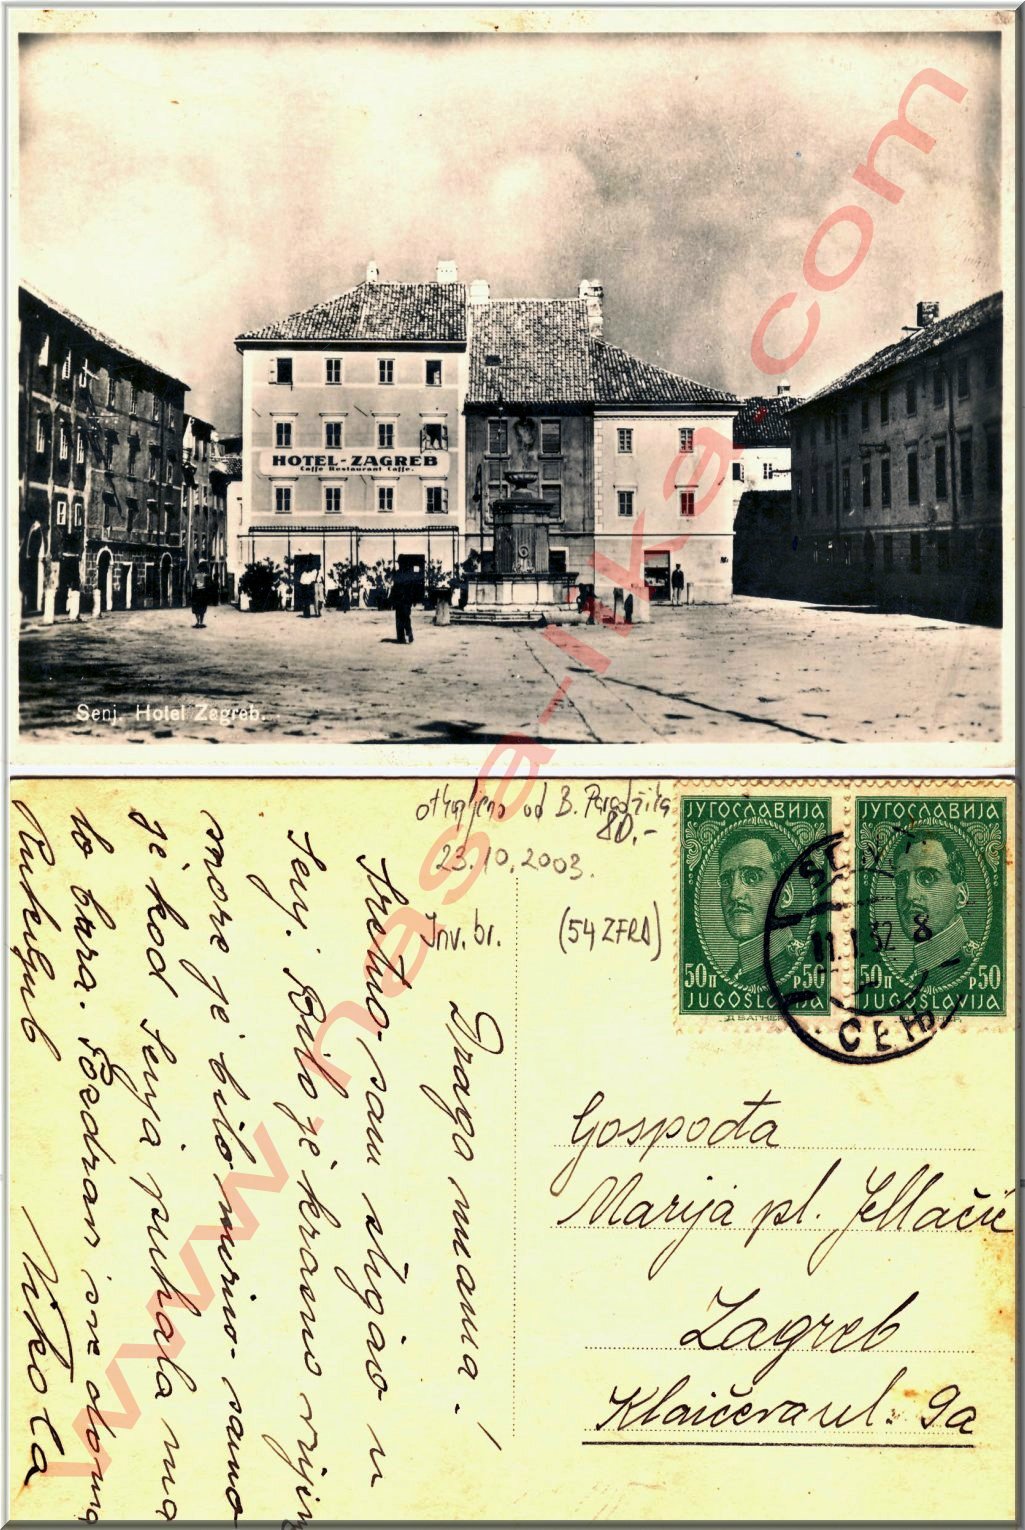 HOTEL-ZAGREB
Caffe Restaurant Caffe.
Senj. Hotel Zagreb.
www.nasa-rika.com
otkupljeno od B. 
80.-
23.10.2003.
Inv. br.
Draga mama!
Sretno sam stigao u
Senj. Bilo je krasno vrijeme
more je bilo mirno - samo
je kod Senja puhala ma
lo bura. Pozdrav sve doma
Ruholjub
Nikola
ЈУГОСЛАВИЈА
50 П Р 50
JUGOSLAVIJA
Д. ВАГНЕР
ЈУГОСЛАВИЈА
50 П Р 50
JUGOSLAVIJA
SENJ
11.1.32 8
СЕЊ
Gospođa
Marija pl. Jellačić
Zagreb
Klaićeva ul. 9a